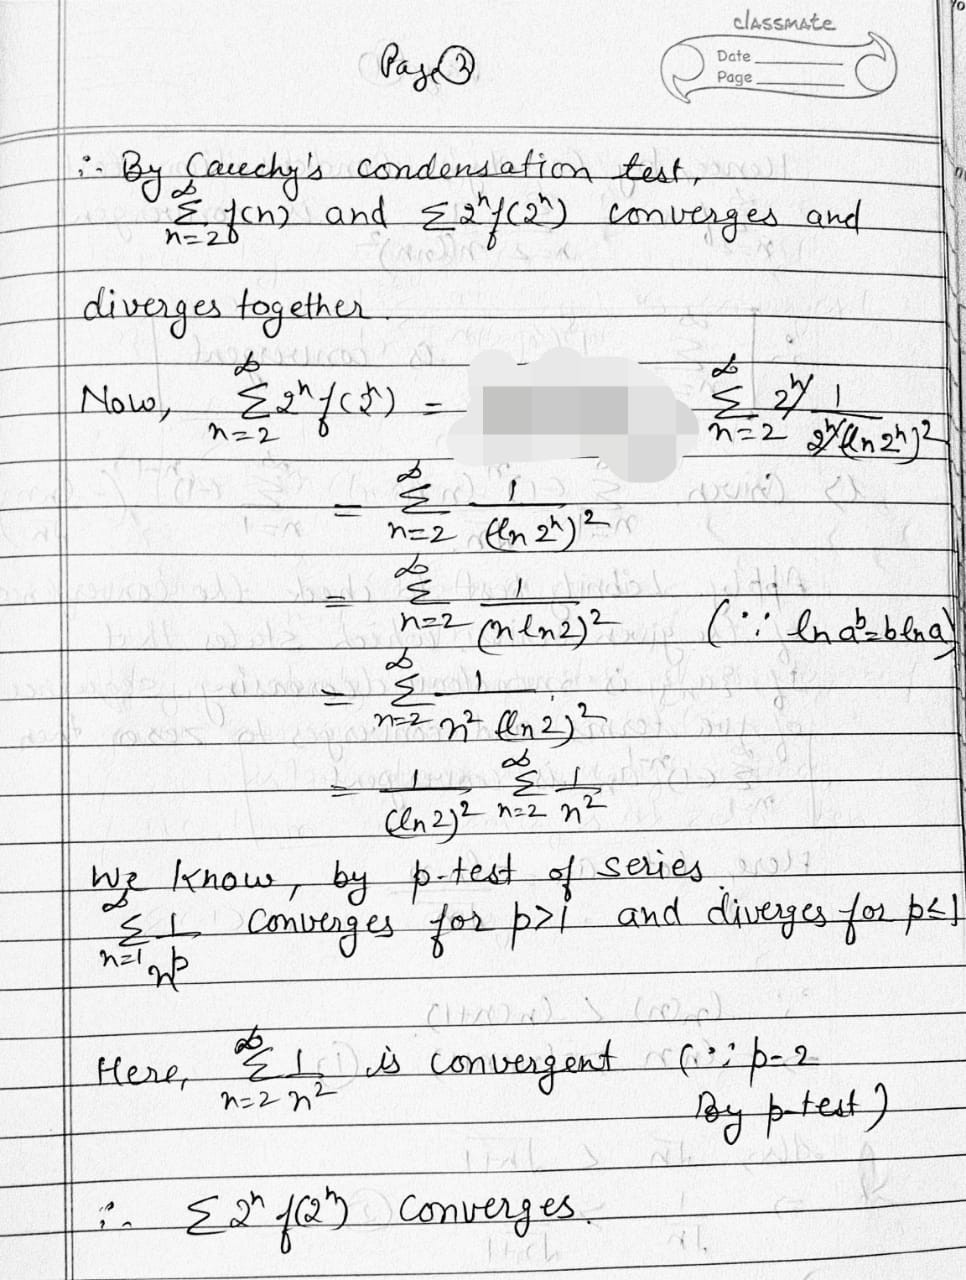 classmate
Date
Page
Page 3
∴ By Cauchy's condensation test,
∞Σn=2 f(n) and Σ2ⁿf(2ⁿ) converges and
diverges together.
Now, ∞Σn=2 2ⁿf(2ⁿ) = ∞Σn=2 2ⁿ 1/2ⁿ(ln 2ⁿ)²
= ∞Σn=2 1/(ln 2ⁿ)²
= ∞Σn=2 1/(n ln 2)² (∵ ln aᵇ=b ln a)
= ∞Σn=2 1/n² (ln 2)²
= 1/(ln 2)² ∞Σn=2 1/n²
We know, by p-test of series
∞Σn=1 1/nᵖ converges for p>1 and diverges for p≤1
Here, ∞Σn=2 1/n² is convergent (∵ p=2
By p-test)
∴ Σ2ⁿf(2ⁿ) converges.